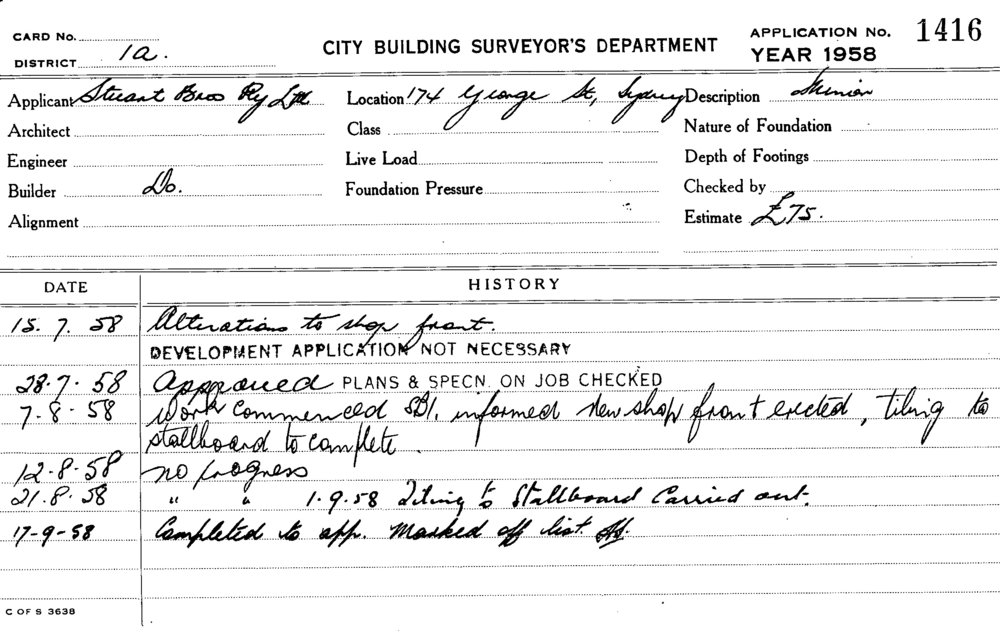 CARD No.
DISTRICT 1a.
CITY BUILDING SURVEYOR'S DEPARTMENT
APPLICATION No. 1416
YEAR 1958
Applicant Stuart Bros Pty Ltd Location 174 George St, Sydney Description Minor
Architect Class Nature of Foundation
Engineer Live Load Depth of Footings
Builder Do. Foundation Pressure Checked by
Alignment Estimate £75.
DATE HISTORY
15.7.58 Alterations to shop front.
DEVELOPMENT APPLICATION NOT NECESSARY
28.7.58 Approved PLANS & SPECN. ON JOB CHECKED
7.8.58 Work commenced informed New shop front erected, tiling to
stallboard to complete.
12.8.58 no progress
21.8.58 " " 1.9.58 Tiling to Stallboard Carried out.
17-9-58 Completed to app. Marked off list
C OF S 3638